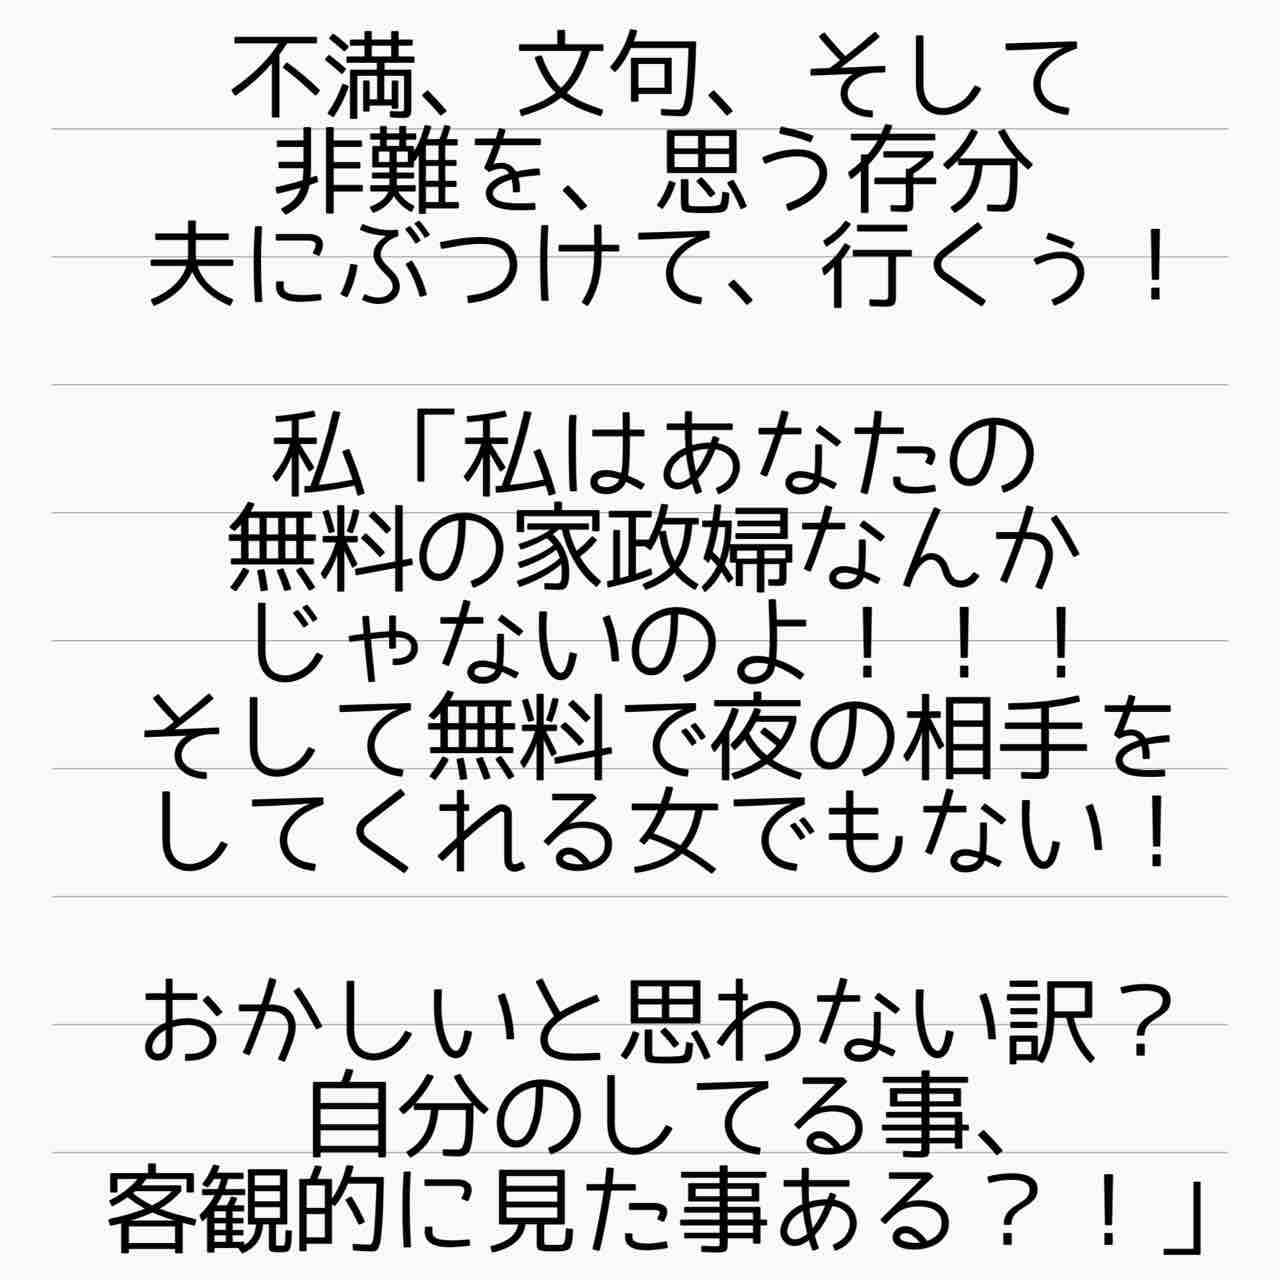 不満、文句、そして
非難を、思う存分
夫にぶつけて、行くぅ！
私「私はあなたの
無料の家政婦なんか
じゃないのよ！！！
そして無料で夜の相手を
してくれる女でもない！
おかしいと思わない訳？
自分のしてる事、
客観的に見た事ある？！」